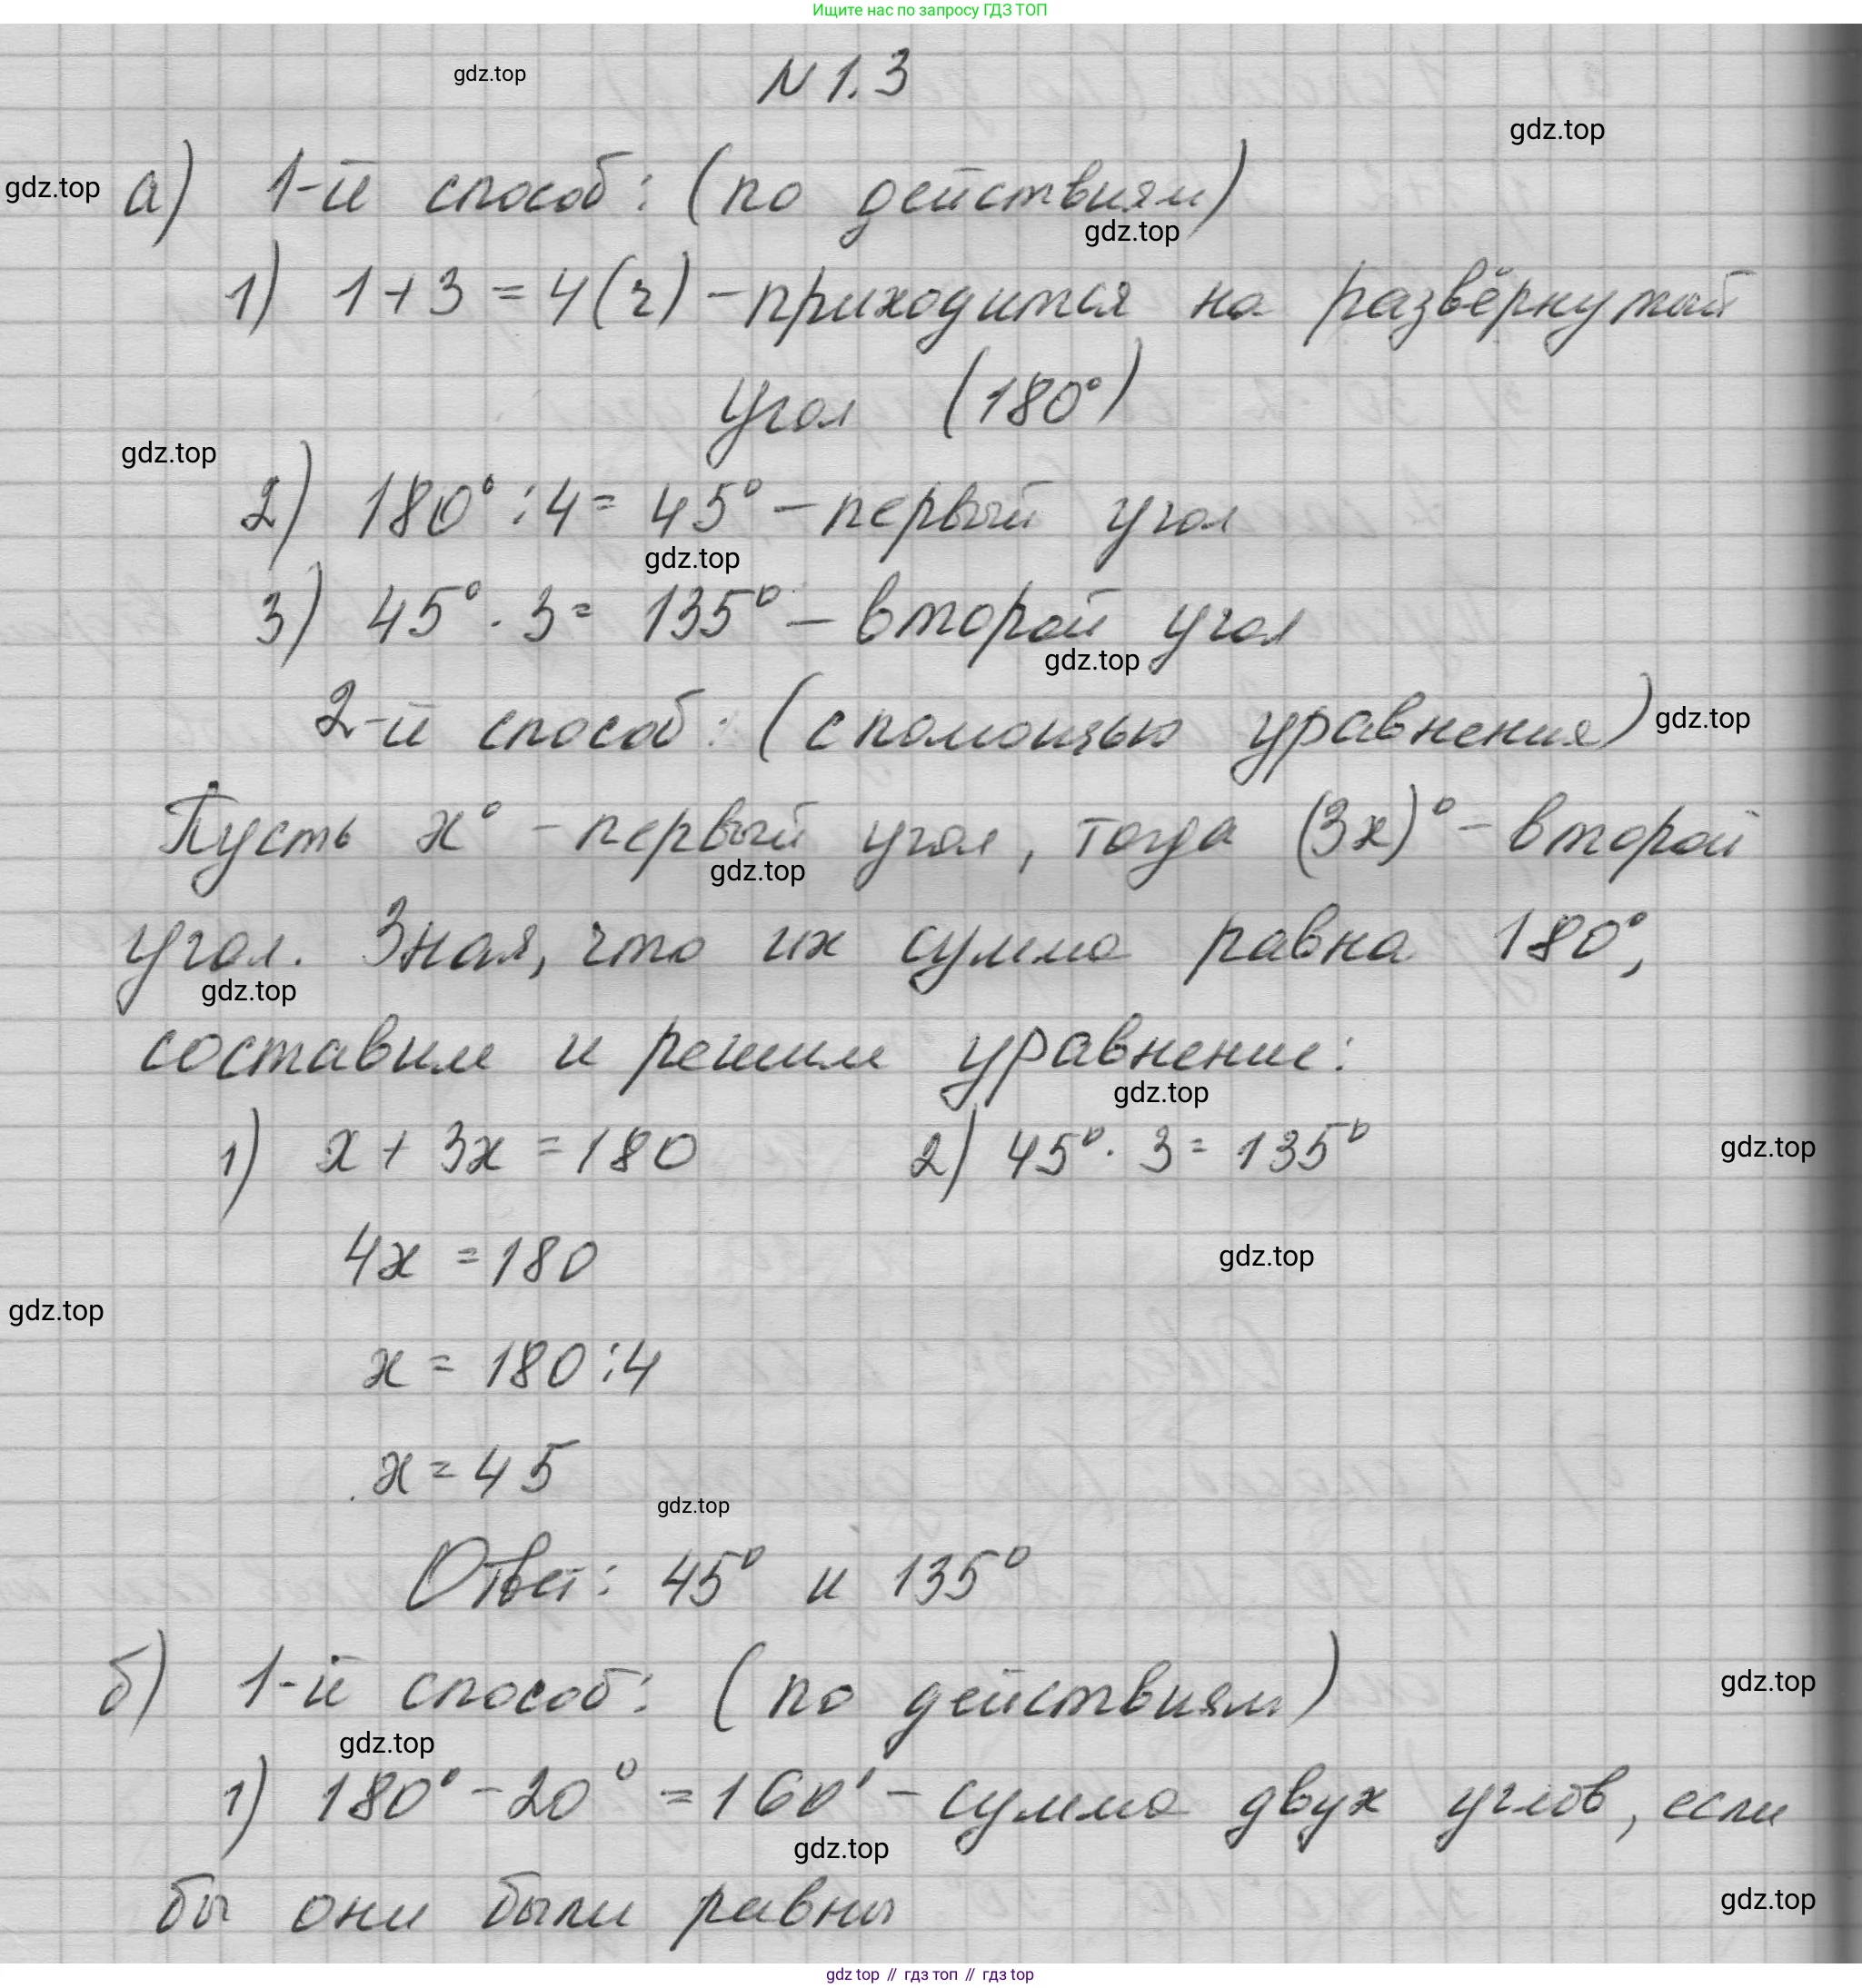 Ищите нас по запросу ГДЗ ТОП
gdz.top
N 1.3
gdz.top
gdz.top
а) 1-й способ: (по действиям)
gdz.top
1) 1+3=4(ч) - приходится на развёрнутый
угол (180°)
gdz.top
2) 180° : 4 = 45° - первый угол
gdz.top
3) 45° · 3 = 135° - второй угол
gdz.top
2-й способ: (с помощью уравнения)
gdz.top
Пусть x° - первый угол, тогда (3x)° - второй
gdz.top
угол. Зная, что их сумма равна 180°,
gdz.top
составим и решим уравнение:
gdz.top
1) x + 3x = 180 2) 45° · 3 = 135°
gdz.top
4x = 180
gdz.top
gdz.top
x = 180 : 4
x = 45
gdz.top
Ответ: 45° и 135°
б) 1-й способ: (по действиям)
gdz.top
gdz.top
1) 180° - 20° = 160° - сумма двух углов, если
gdz.top
бы они были равны
gdz.top
gdz top // гдз топ // гдз top